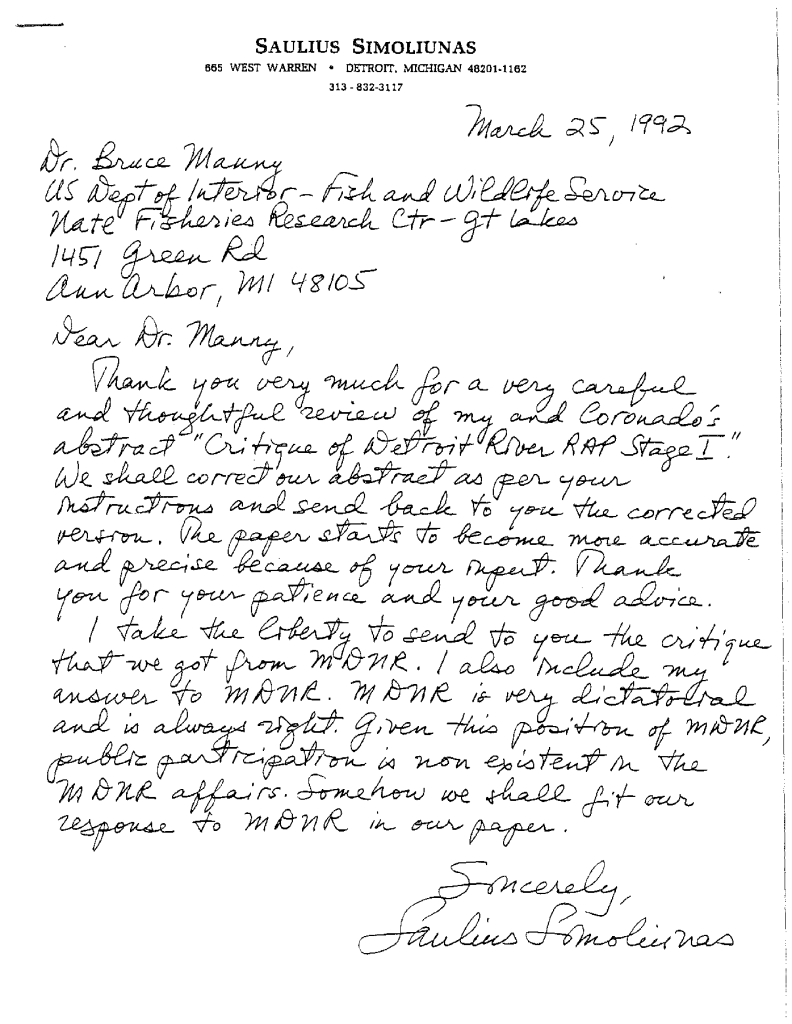 SAULIUS SIMOLIUNAS
665 WEST WARREN • DETROIT, MICHIGAN 48201-1162
313-832-3117
March 25, 1992
Dr. Bruce Manny
US Dept of Interior - Fish and Wildlife Service
Natl Fisheries Research Ctr - Gt Lakes
1451 Green Rd
Ann Arbor, MI 48105
Dear Dr. Manny,
Thank you very much for a very careful
and thoughtful review of my and Coronado's
abstract "Critique of Detroit River RAP Stage I."
We shall correct our abstract as per your
instructions and send back to you the corrected
version. The paper starts to become more accurate
and precise because of your input. Thank
you for your patience and your good advice.
I take the liberty to send to you the critique
that we got from MDNR. I also include my
answer to MDNR. MDNR is very dictatorial
and is always right. Given this position of MDNR,
public participation is non existent in the
MDNR affairs. Somehow we shall fit our
response to MDNR in our paper.
Sincerely,
Saulius Simoliunas